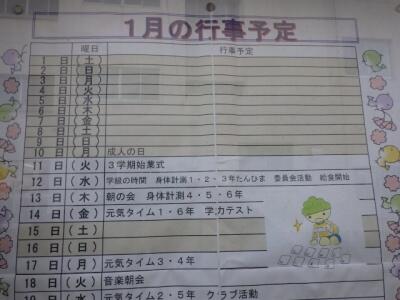 1月の行事予定
曜日 行事予定
1 日 (土)
2 日 (日)
3 日 (月)
4 日 (火)
5 日 (水)
6 日 (木)
7 日 (金)
8 日 (土)
9 日 (日)
10 日 (月) 成人の日
11 日 (火) 3学期始業式
12 日 (水) 学級の時間 身体計測1・2・3年たんひま 委員会活動 給食開始
13 日 (木) 朝の会 身体計測4・5・6年
14 日 (金) 元気タイム1・6年 学力テスト
15 日 (土)
16 日 (日)
17 日 (月) 元気タイム3・4年
18 日 (火) 音楽朝会
19 日 (水) 元気タイム2・5年 クラブ活動